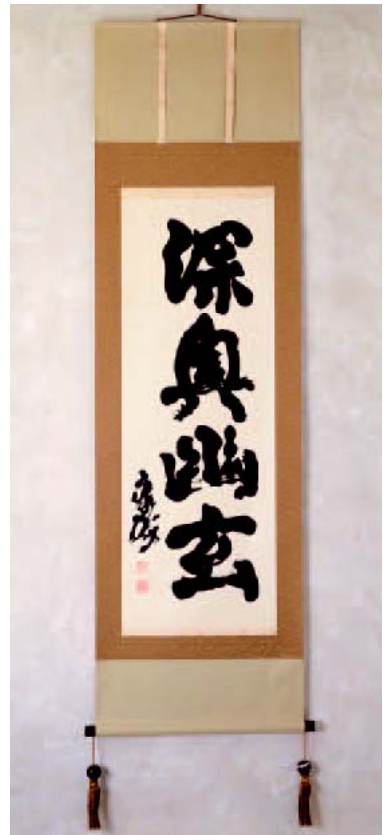 深奥幽玄